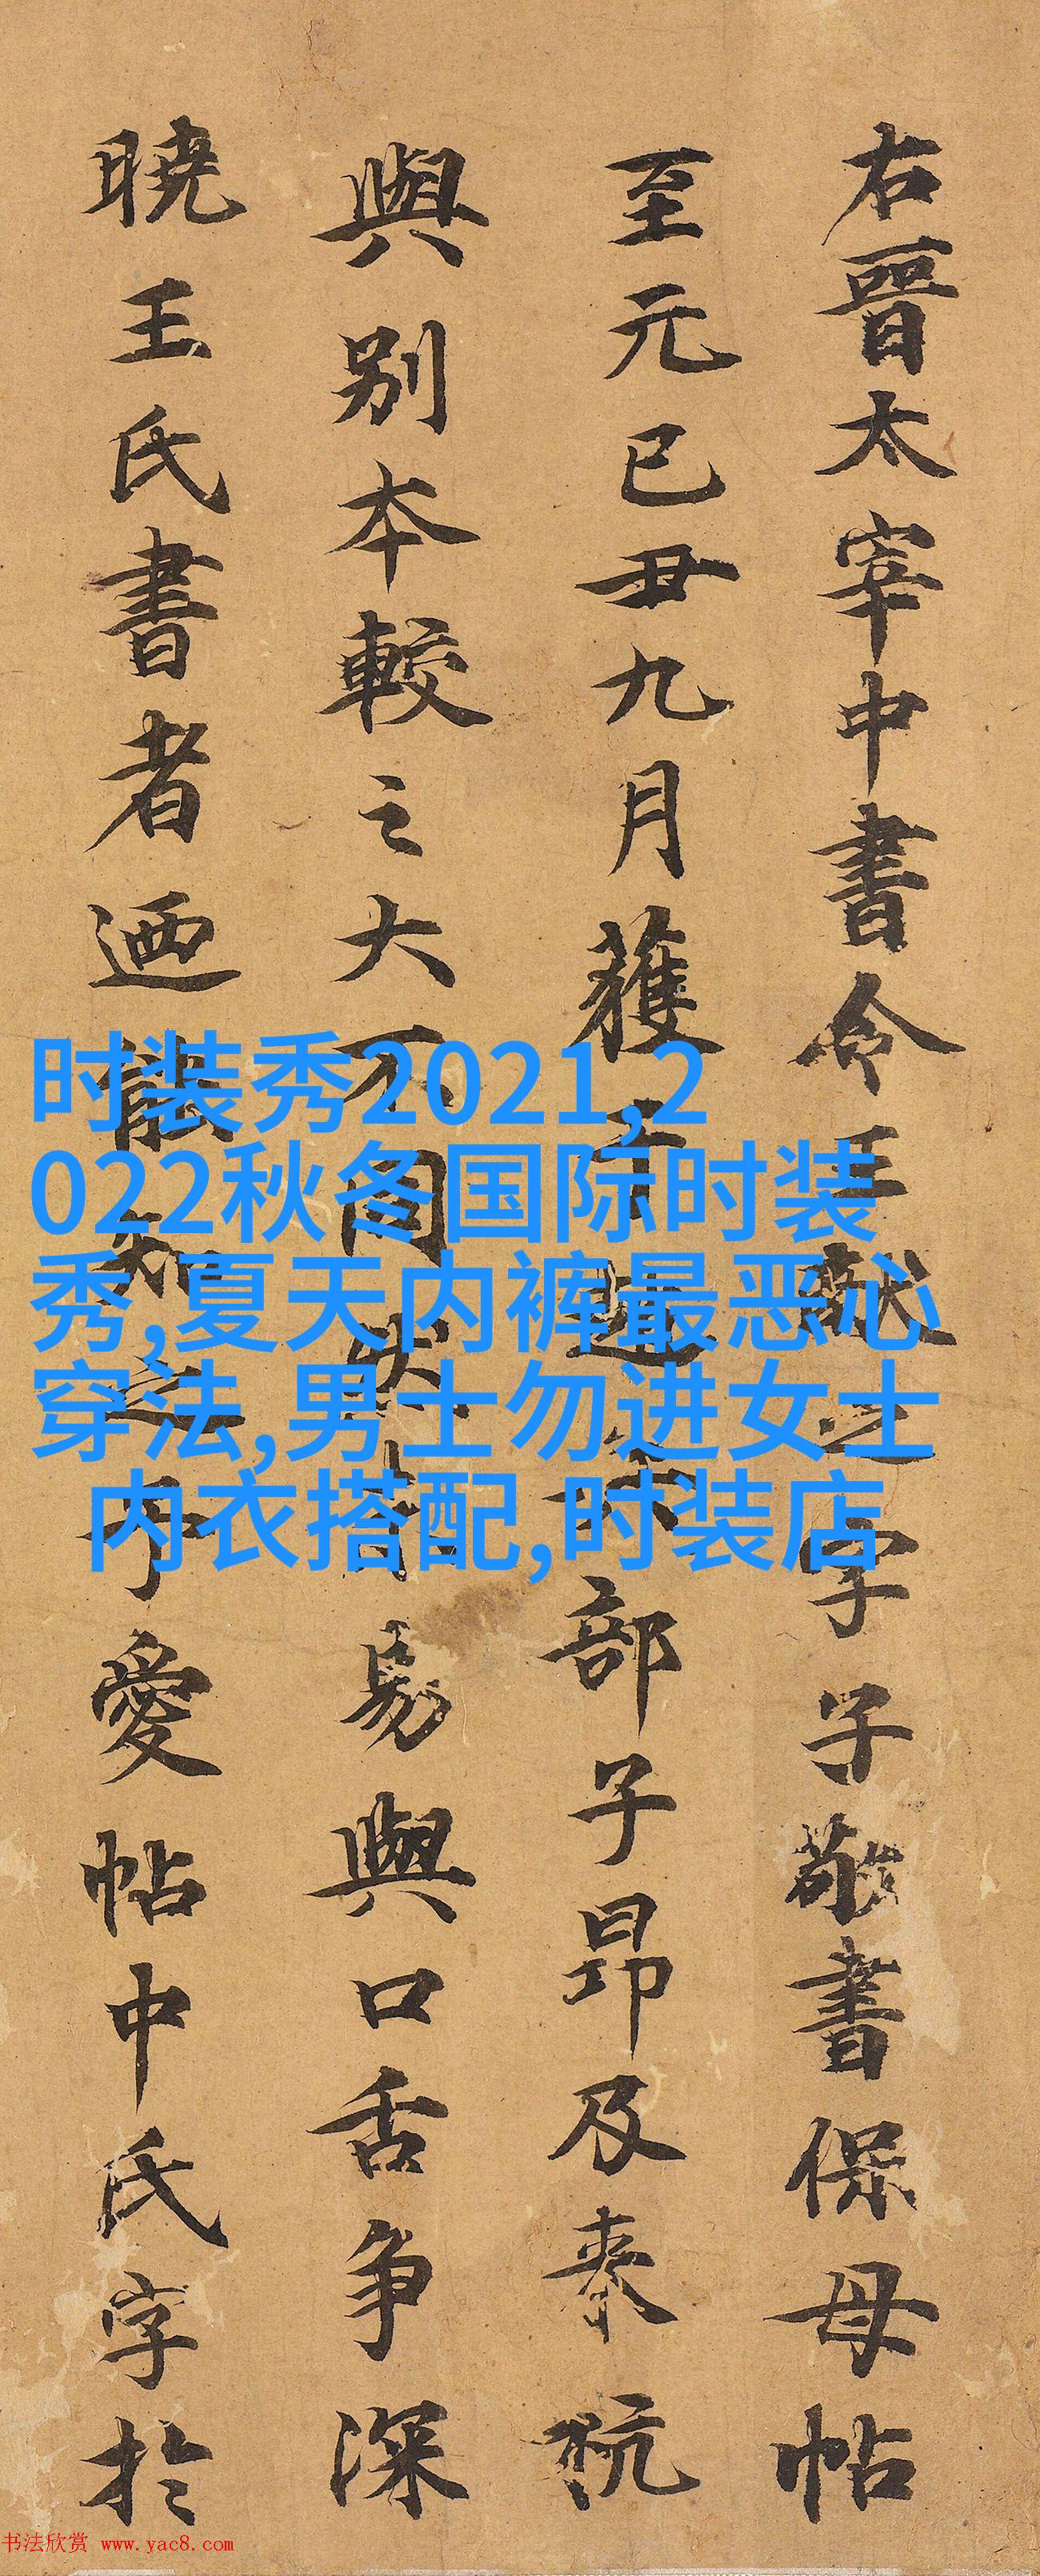 右晉太宰中書令王獻之字子敬書保母帖
至元已丑九月獲于越部子昂及泰
與别本較之大不同易與口舌争深
曉王氏書者迺能知之予愛帖中氏字於
时装秀2021,2
022秋冬国际时装
秀,夏天内裤最恶心
穿法,男士勿进女士
内衣搭配,时装店
书法欣赏 www.yac8.com